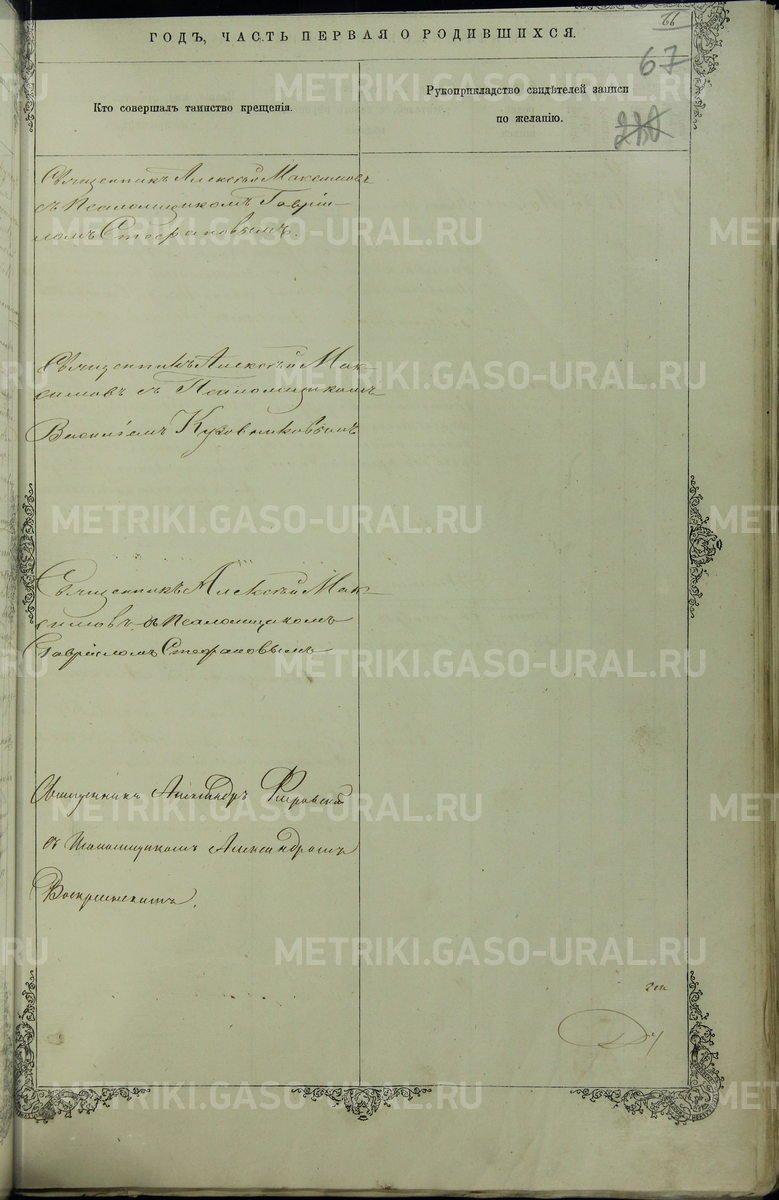 66
ГОДЪ, ЧАСТЬ ПЕРВАЯ О РОДИВШИХСЯ.
67
Кто совершалъ таинство крещенія.
Рукоприкладство свидѣтелей записи
по желанію.
Священникъ Алексѣй Максимовъ
съ Псаломщикомъ Гаврі-
ломъ Стефановымъ.
Священникъ Алексѣй Мак-
симовъ съ Псаломщикомъ
Василіемъ
Священникъ Алексѣй Мак-
симовъ съ Псаломщикомъ
Гавріиломъ Стефановымъ
Священникъ Александръ
съ Псаломщикомъ Александромъ
Воскресенскимъ.
METRIKI.GASO-URAL.RU